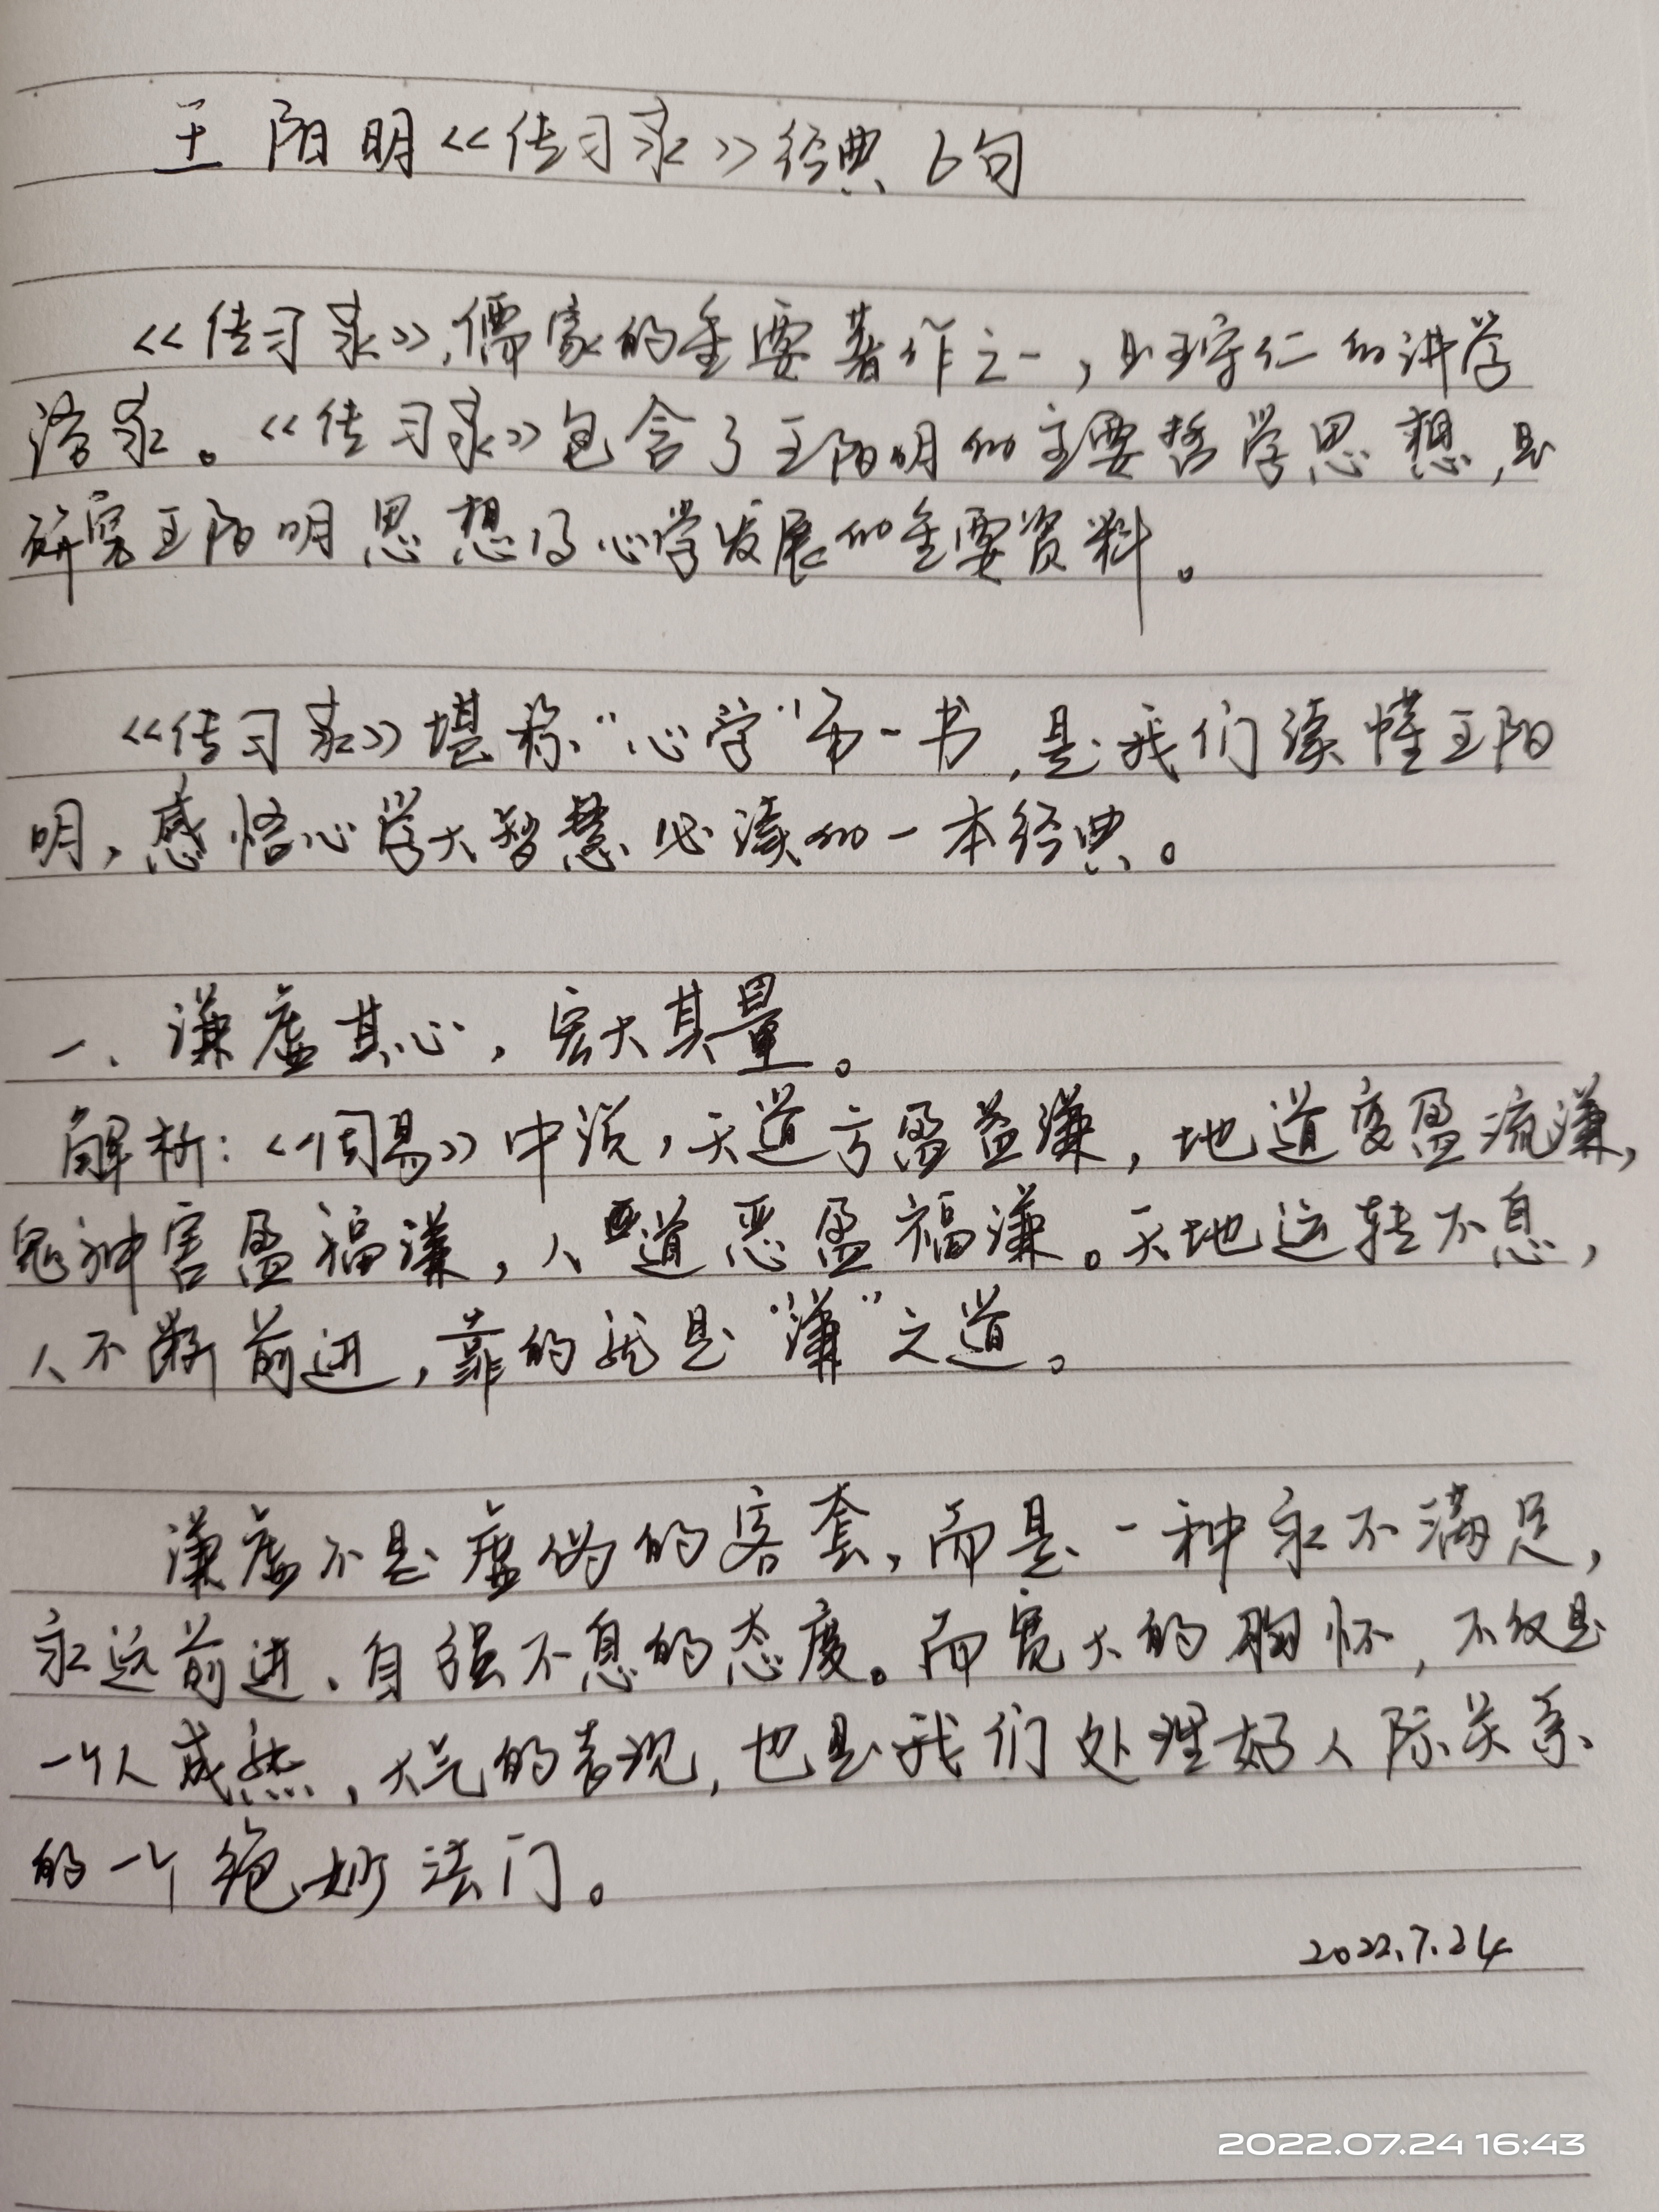 王阳明《传习录》经典6句
《传习录》,儒家的重要著作之一,是王守仁的讲学
语录。《传习录》包含了王阳明的主要哲学思想,是
研究王阳明思想及心学发展的重要资料。
《传习录》堪称“心学”第一书,是我们读懂王阳
明,感悟心学大智慧必读的一本经典。
一、谦虚其心,宏大其量。
解析:《周易》中说,天道亏盈益谦,地道变盈流谦,
鬼神害盈福谦,人道恶盈福谦。天地运转不息,
人不断前进,靠的就是“谦”之道。
谦虚不是虚伪的客套,而是一种永不满足,
永远前进、自强不息的态度。而宽大的胸怀,不仅是
一个人成熟,大气的表现,也是我们处理好人际关系
的一个绝妙法门。
2022.7.24
2022.07.24 16:43